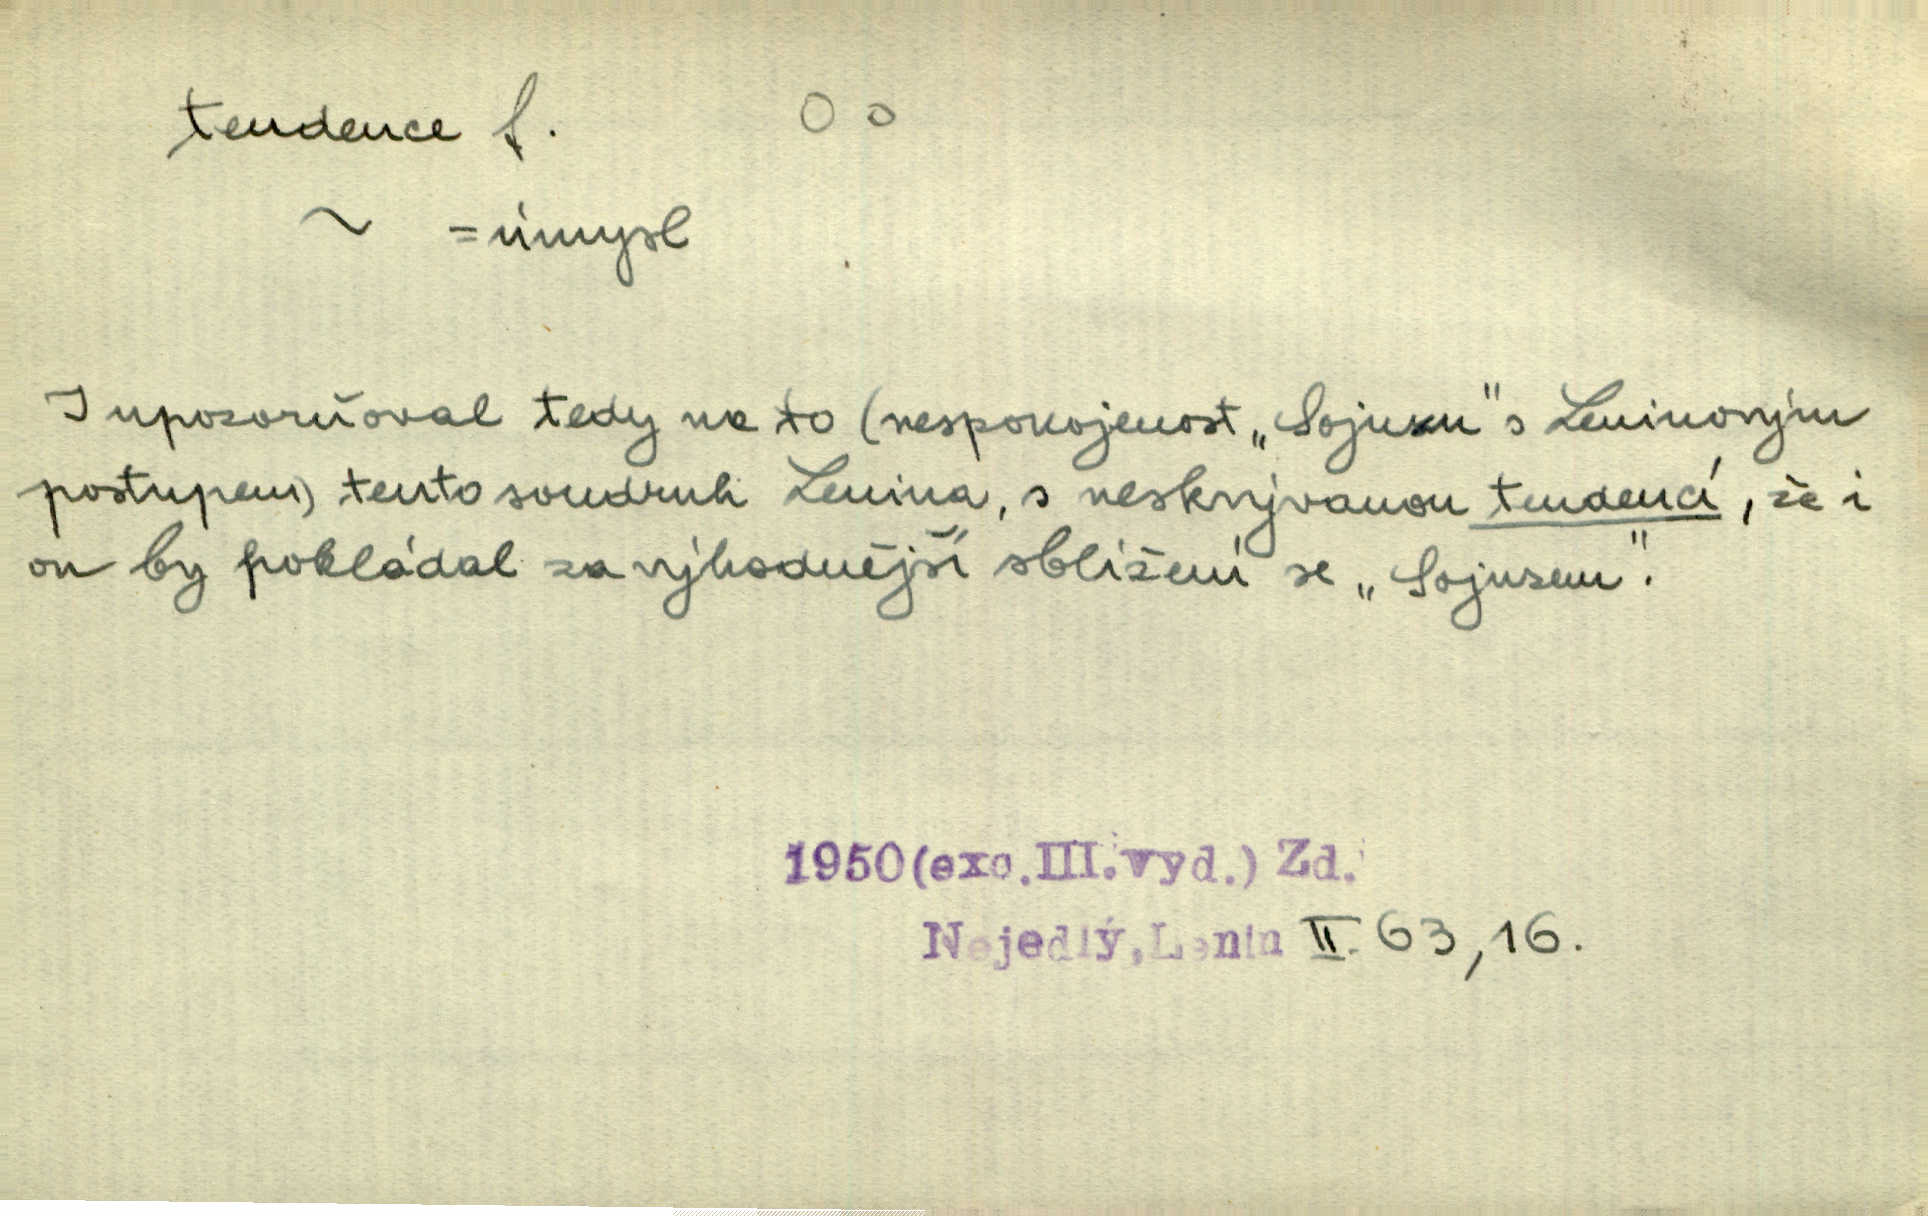 tendence f. O o
~ =úmysl
I upozorňoval tedy na to (nespokojenost „Sojuzu" s Leninovým
postupem) tento soudruh Lenina, s neskrývanou tendencí, že i
on by pokládal za výhodnější sblížení se „Sojuzem".
1950(exc.III.vyd.) Zd.
Nejedlý, Lenin II. 63, 16.